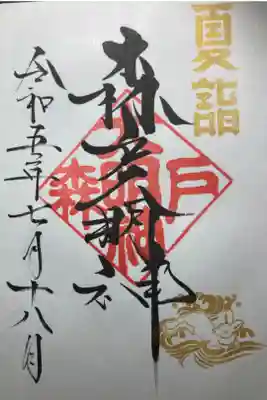 夏詣
森戸大明神
森戸
令和五年七月十八日